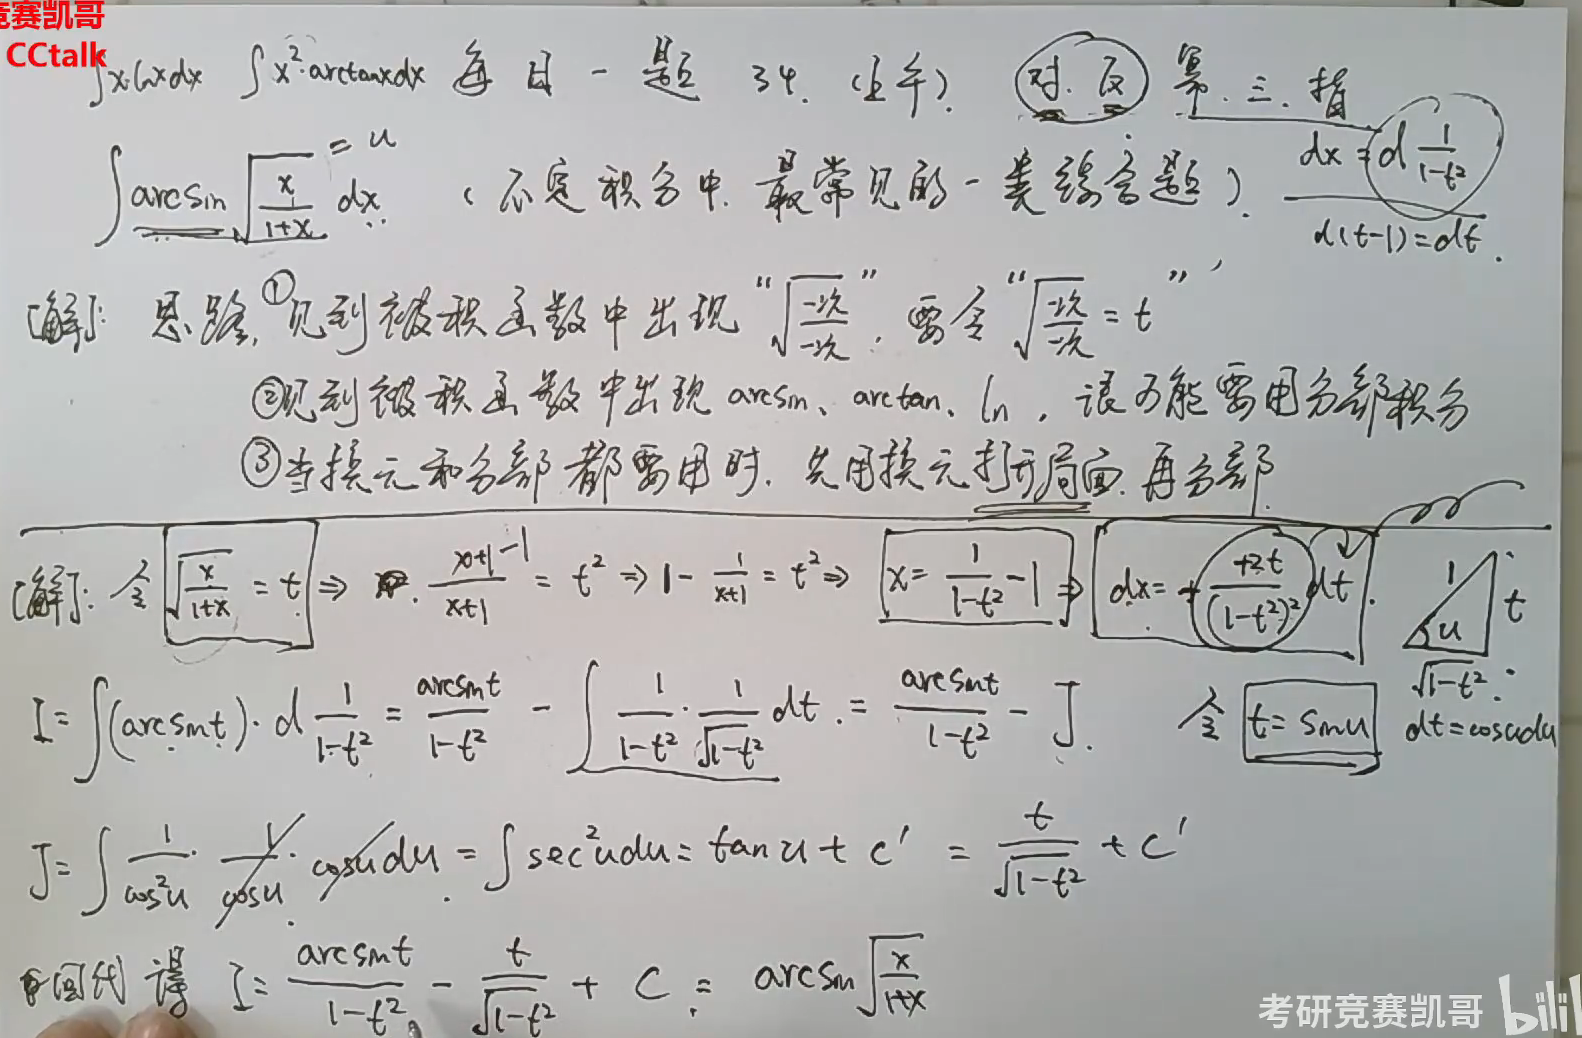 竞赛凯哥
CCtalk
∫x·lnxdx ∫x²·arctanxdx 每日一题 34. (上午). 对. 反 幂. 三. 指
∫arcsin√(x/(1+x)) dx = u (不定积分中.最常见的一类综合题). dx = d 1/(1-t²)
d(t-1)=dt.
[解]: 思路, ①见到被积函数中出现“√(一次/一次)”, 要令“√(一次/一次) = t”
②见到被积函数中出现 arcsin、arctan、ln, 很可能要用分部积分
③当换元和分部都要用时. 先用换元打开局面. 再分部.
[解]: 令 √(x/(1+x)) = t ⇒ (x+1-1)/(x+1) = t² ⇒ 1 - 1/(x+1) = t² ⇒ x = 1/(1-t²) - 1 ⇒ dx = + +2t/(1-t²)² dt. 1 t u √(1-t²).
I = ∫(arcsint)·d 1/(1-t²) = arcsint/(1-t²) - ∫ 1/(1-t²) · 1/√(1-t²) dt. = arcsint/(1-t²) - J. 令 t = sinu dt = cosudu
J = ∫ 1/cos²u · 1/cosu · cosudu = ∫sec²udu = tanu + c' = t/√(1-t²) + c'
回代得 I = arcsint/(1-t²) - t/√(1-t²) + C = arcsin√(x/(1+x))
考研竞赛凯哥 bili